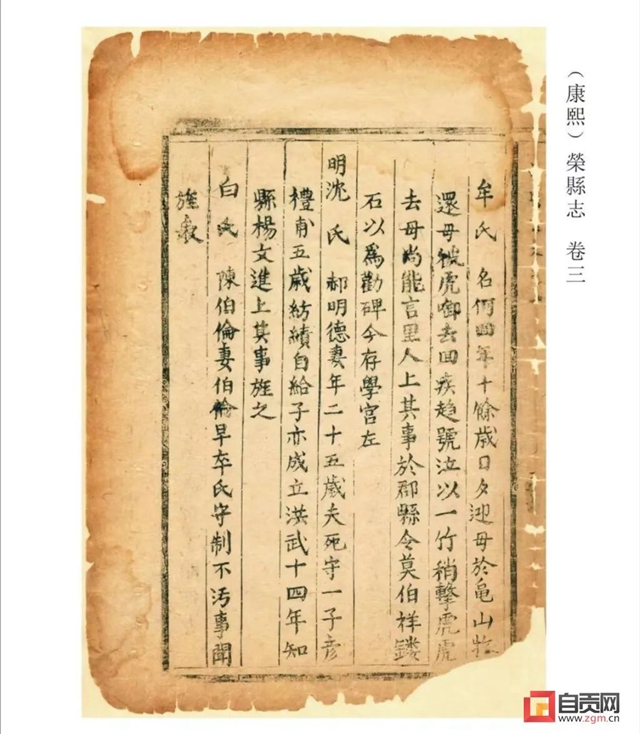 （康熙）榮縣志 卷三
牟氏 名何四年十餘歲日夕迎母於龜山牧
還母被虎啣去回疾趨號泣以一竹稍擊虎虎
去母尚能言里人上其事於郡縣令莫伯祥鏤
石以為勸碑今存學宮左
明沈氏 郝明德妻年二十五歲夫死守一子彥
禮甫五歲紡績自給子亦成立洪武十四年知
縣楊文進上其事旌之
白氏 陳伯倫妻伯倫早卒氏守制不污事聞
旌表
自贡网
www.zgm.cn